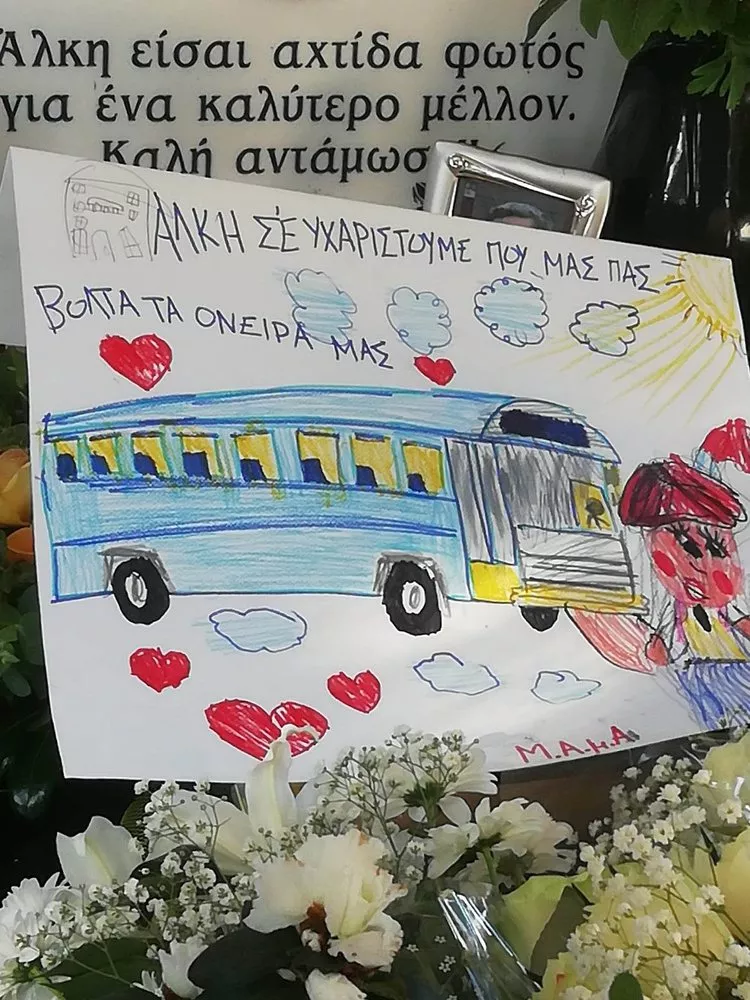 Άλκη είσαι αχτίδα φωτός
για ένα καλύτερο μέλλον.
Καλή αντάμωσ
ΆΛΚΗ Σ'ΕΥΧΑΡΙΣΤΟΥΜΕ ΠΟΥ ΜΑΣ ΠΑΣ
ΒΟΛΤΑ ΤΑ ΟΝΕΙΡΑ ΜΑΣ
Μ.Α.κ.Α